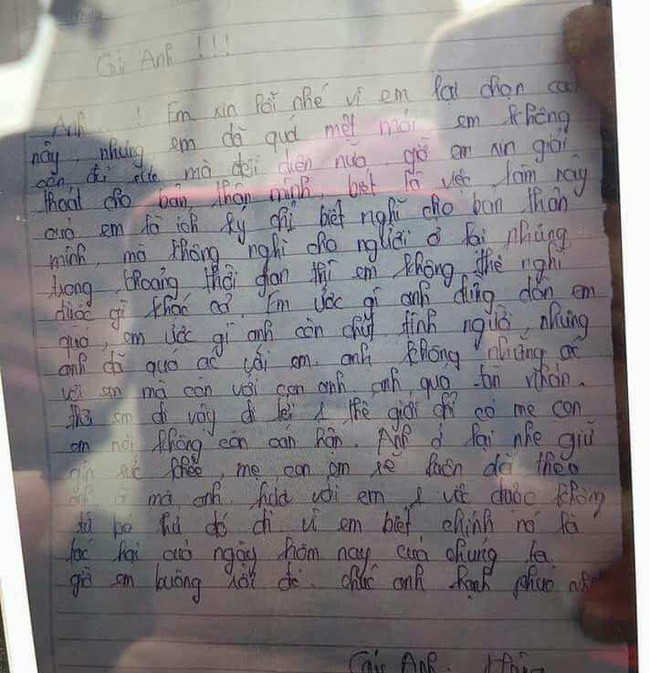 Gửi Anh !!!
Anh . . ! Em xin lỗi nhé vì em lại chọn cá
này, nhưng em đã quá mệt mỏi em không
còn đủ sức mà đối diện nữa, giờ em xin giải
thoát cho bản thân mình, biết là việc làm này
quá em là ích kỷ chỉ biết nghĩ cho bản thân
mình, mà không nghĩ cho người ở lại nhưng
trong khoảng thời gian thì em không thể nghĩ
được gì khác cả. Em ước gì anh đừng dồn em
quá, em ước gì anh còn chút tính người, nhưng
anh đã quá ác với em. anh không những ác
với em mà còn với con anh. anh quá tàn nhẫn.
em đi vậy đi tới 1 thế giới chỉ có mẹ con
em nơi không còn oán hận. Anh ở lại nhé giữ
gìn sức khỏe, mẹ con em sẽ luôn dõi theo
mà anh. hứa với em 1 việc được không
từ bỏ đó đi vì em biết chính nó là
tác hại của ngày hôm nay của chúng ta
giờ em buông rồi đó. chúc anh hạnh phúc
Anh.